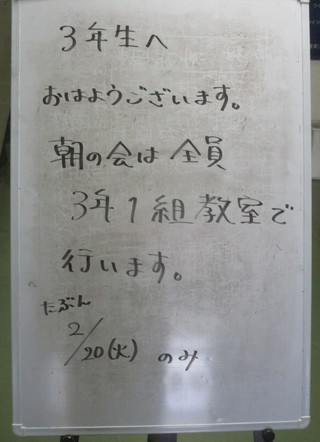 3年生へ
おはようございます。
朝の会は全員
3年1組教室で
行います。
たぶん
2/20(火)のみ